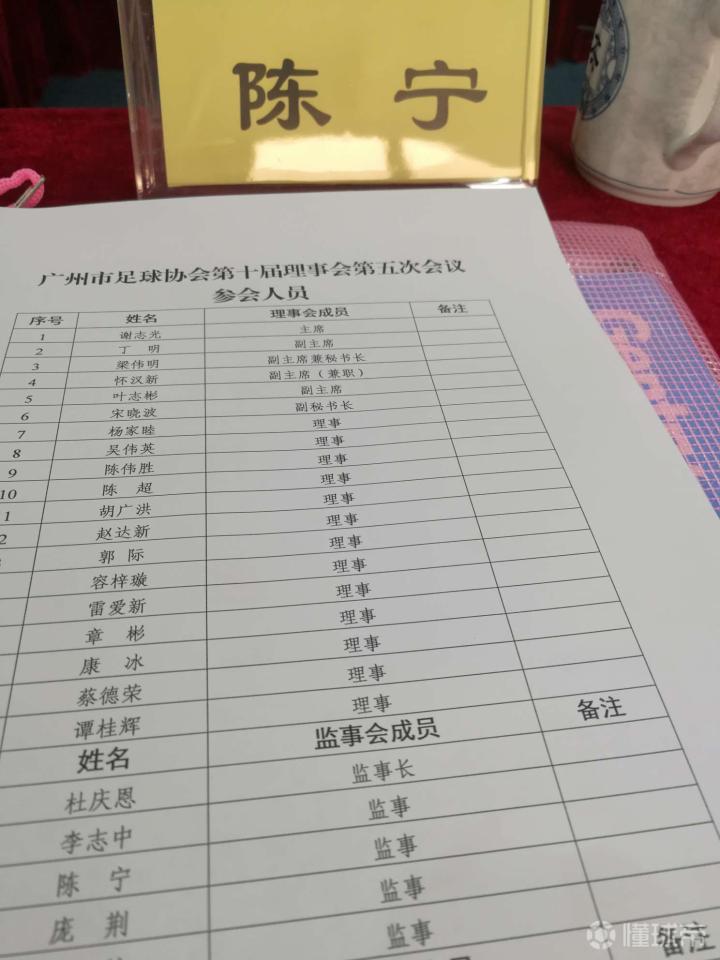 陈 宁
广州市足球协会第十届理事会第五次会议
参会人员
序号 姓名 理事会成员 备注
1 谢志光 主席
2 丁 明 副主席
3 梁伟明 副主席兼秘书长
4 怀汉新 副主席（兼职）
5 叶志彬 副主席
6 宋晓波 副秘书长
7 杨家睦 理事
8 吴伟英 理事
9 陈伟胜 理事
10 陈 超 理事
1 胡广洪 理事
2 赵达新 理事
郭 际 理事
容梓璇 理事
雷爱新 理事
章 彬 理事
康 冰 理事
蔡德荣 理事
谭桂辉 理事
姓名 监事会成员 备注
杜庆恩 监事长
李志中 监事
陈 宁 监事
庞 荆 监事
监事
备注
懂球帝